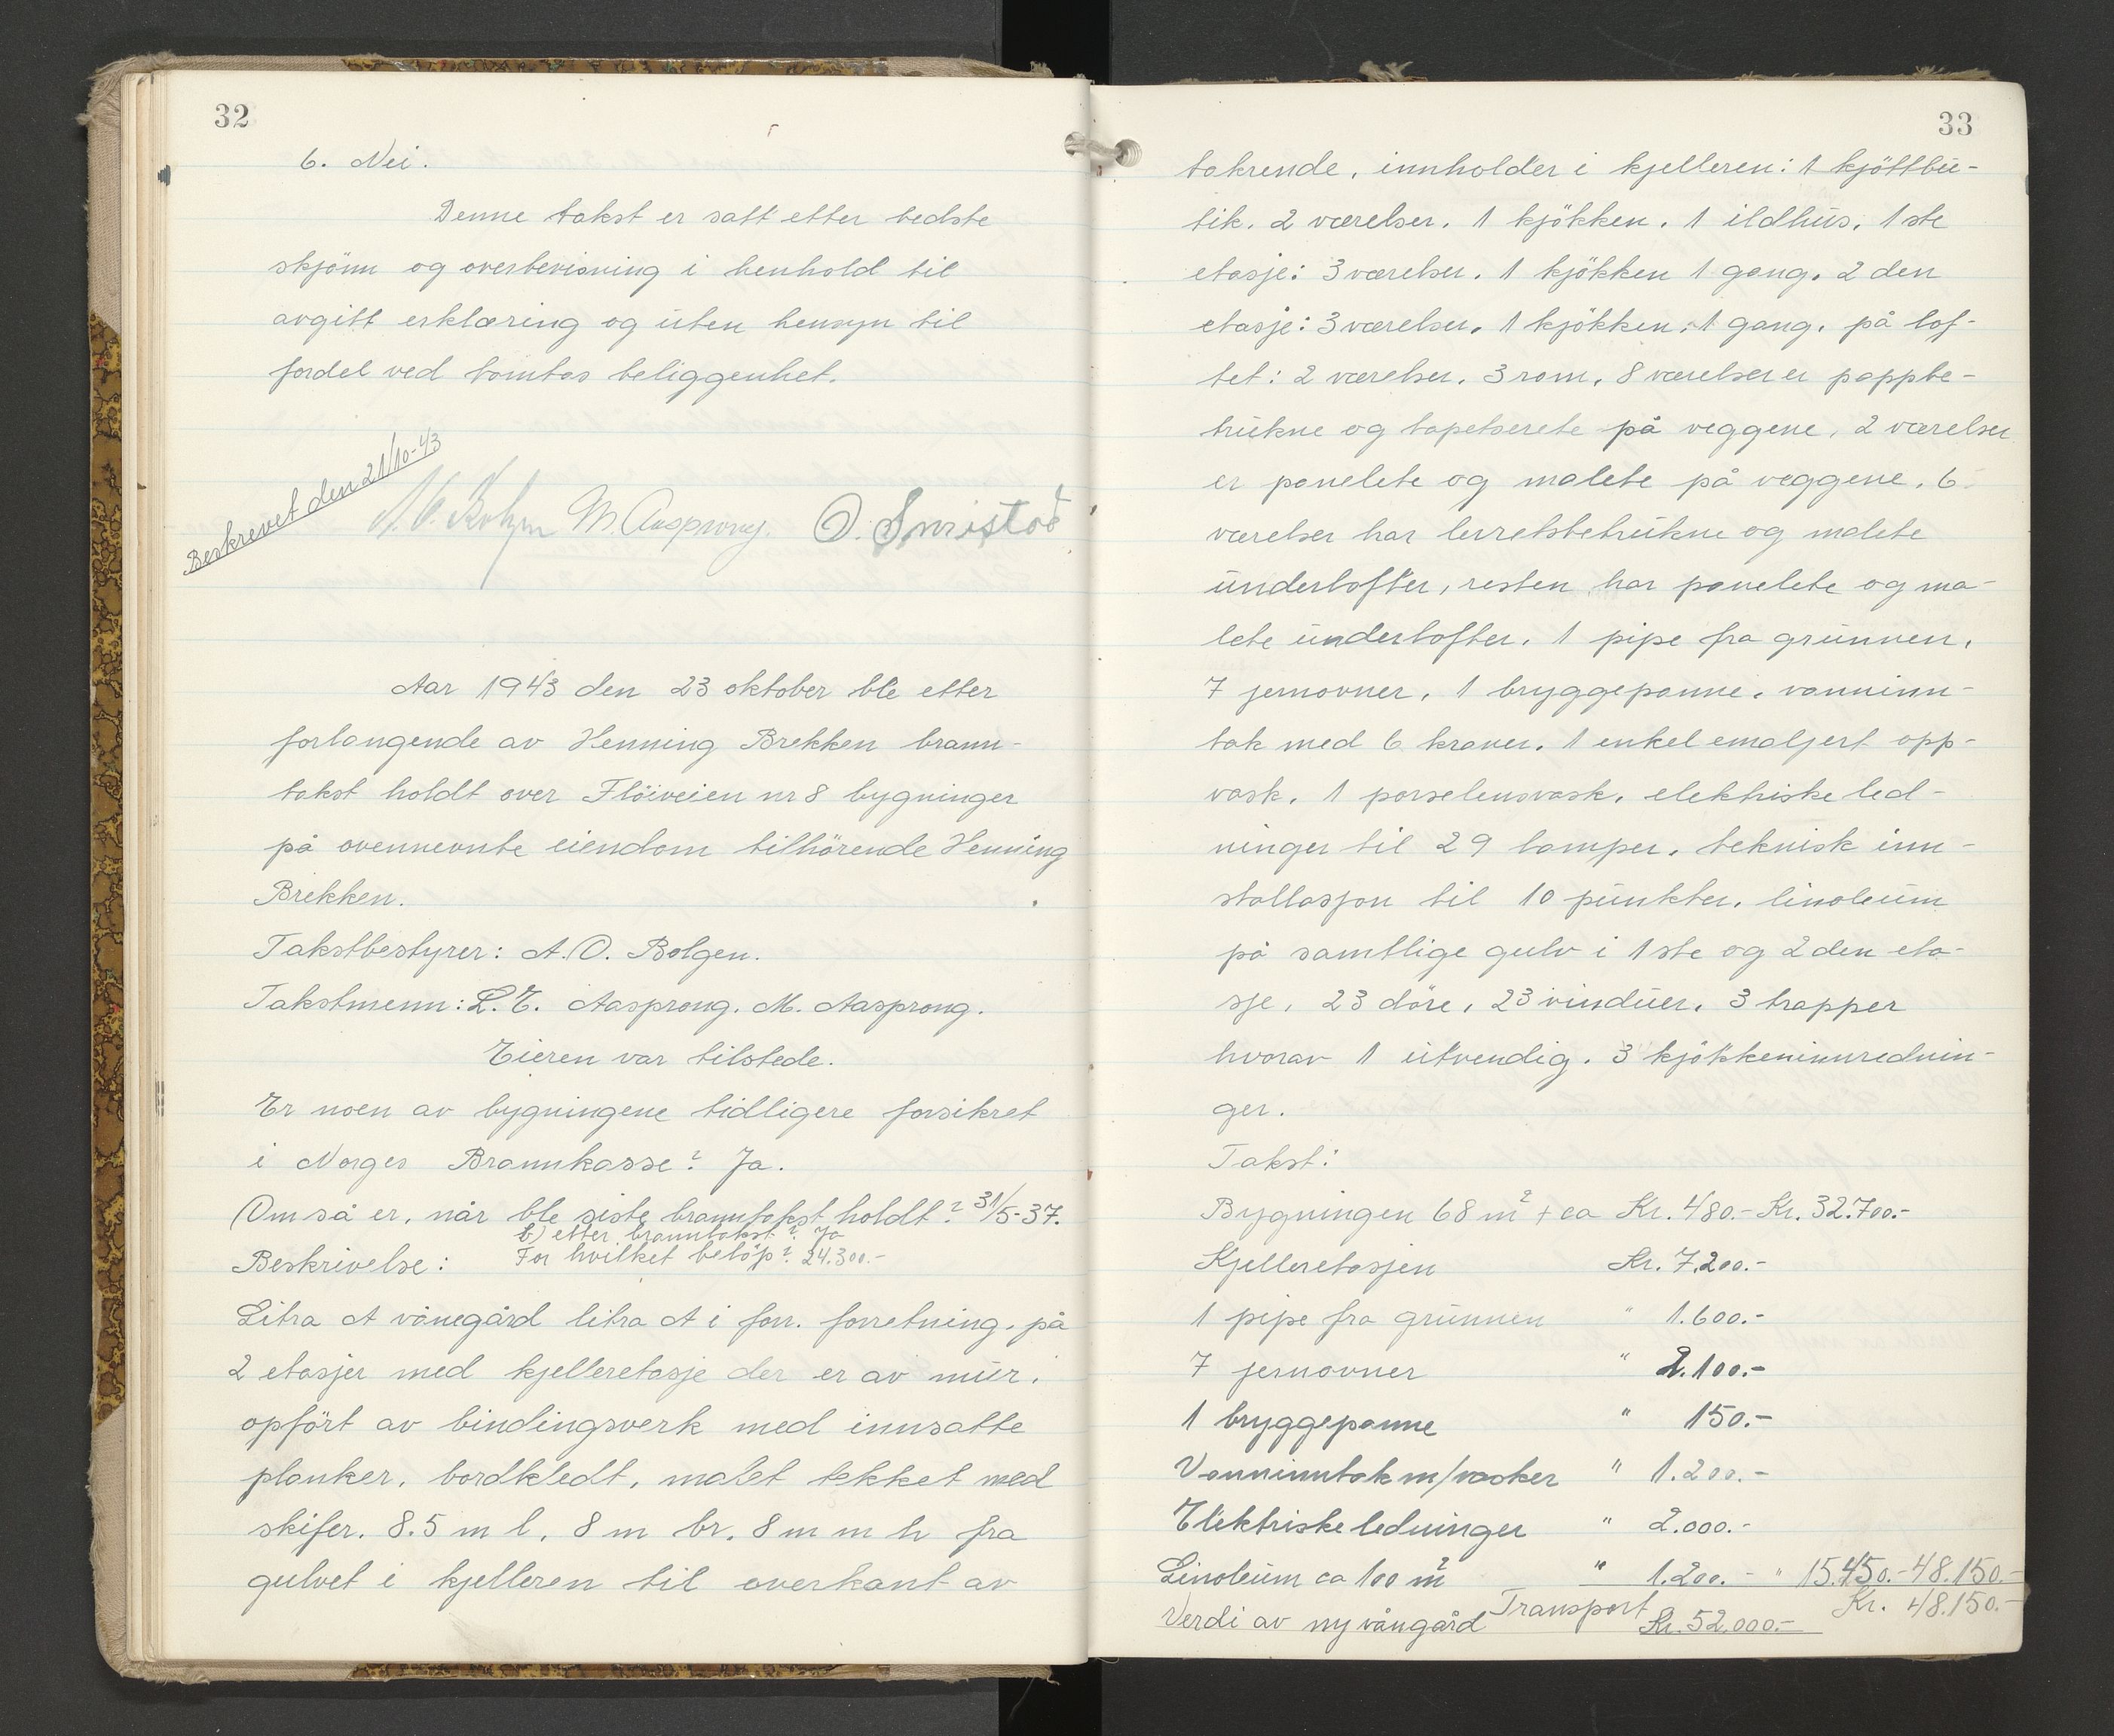 32
6. Nei.
Denne takst er satt etter bedste
skjönn og overbevisning i henhold til
avgitt erklæring og uten hensyn til
fordel ved tomtas beliggenhet.
Beskrevet den 21/10-43
M. Aasprong. O. Smistad
Aar 1943 den 23 oktober ble etter
forlangende av Henning Brekken brann-
takst holdt over Flöiveien nr 8 bygninger
på ovennevnte eiendom tilhörende Henning
Brekken.
Takstbestyrer: A.O. Bolgen.
Takstmenn: L.E. Aasprong. M. Aasprong.
Eieren var tilstede.
Er noen av bygningene tidligere forsikret
i Norges Brannkasse? Ja.
Om så er, når ble siste branntakst holdt? 31/5-37.
b) etter branntakst? Ja
Beskrivelse: For hvilket belöp? 24.300.-
Litra A vånegård litra A i forr. forretning. på
2 etasjer med kjelleretasje der er av mur.
opfört av bindingsverk med innsatte
planker, bordkledt, malet tekket med
skifer. 8.5 m l. 8 m br. 8 m m h fra
gulvet i kjelleren til overkant av
33
takrende, innholder i kjelleren: 1 kjöttbu-
tik. 2 værelser. 1 kjökken. 1 ildhus. 1ste
etasje: 3 værelser. 1 kjökken 1 gang. 2 den
etasje: 3 værelser. 1 kjökken. 1 gang. på lof-
tet: 2 værelser. 3 rom. 8 værelser er pappbe-
trukne og tapetserete på veggene, 2 værelser
er panelete og malete på veggene. 6
værelser har lerretsbetrukne og malete
underlofter, resten har panelete og ma-
lete underlofter. 1 pipe fra grunnen.
7 jernovner, 1 bryggepanne. vanninn-
tak med 6 kraner. 1 enkel emaljert opp-
vask. 1 porselensvask. elektriske led-
ninger til 29 lamper. teknisk inn-
stallasjon til 10 punkter. linoleum
på samtlige gulv i 1ste og 2den eta-
sje, 23 döre, 23 vinduer. 3 trapper
hvorav 1 utvendig. 3 kjökkeninnrednin-
ger.
Takst:
Bygningen 68 m² + ca Kr. 480.- Kr. 32.700.-
Kjelleretasjen Kr. 7.200.-
1 pipe fra grunnen " 1.600.-
7 jernovner " 2.100.-
1 bryggepanne " 150.-
Vanninntak m/vasker " 1.200.-
Elektriske ledninger " 2.000.-
Linoleum ca 100 m² " 1.200.- " 15.450.- 48.150.-
Transport Kr. 48.150.-
Verdi av ny vångård Kr. 52.000.-